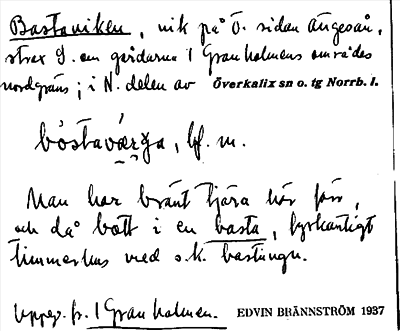 Bastaviken, vik på Ö. sidan Ängesån,
strax S. om gårdarna i Granholmens områdes
nordgräns; i N. delen av Överkalix sn o. tg Norrb. l.
båstavǟrga, bf. m.
Man har bränt tjära här förr,
och då bott i en basta, fyrkantigt
timmerhus med s.k. bastungn.
Uppg. fr. i Granholmen. EDVIN BRÄNNSTRÖM 1937